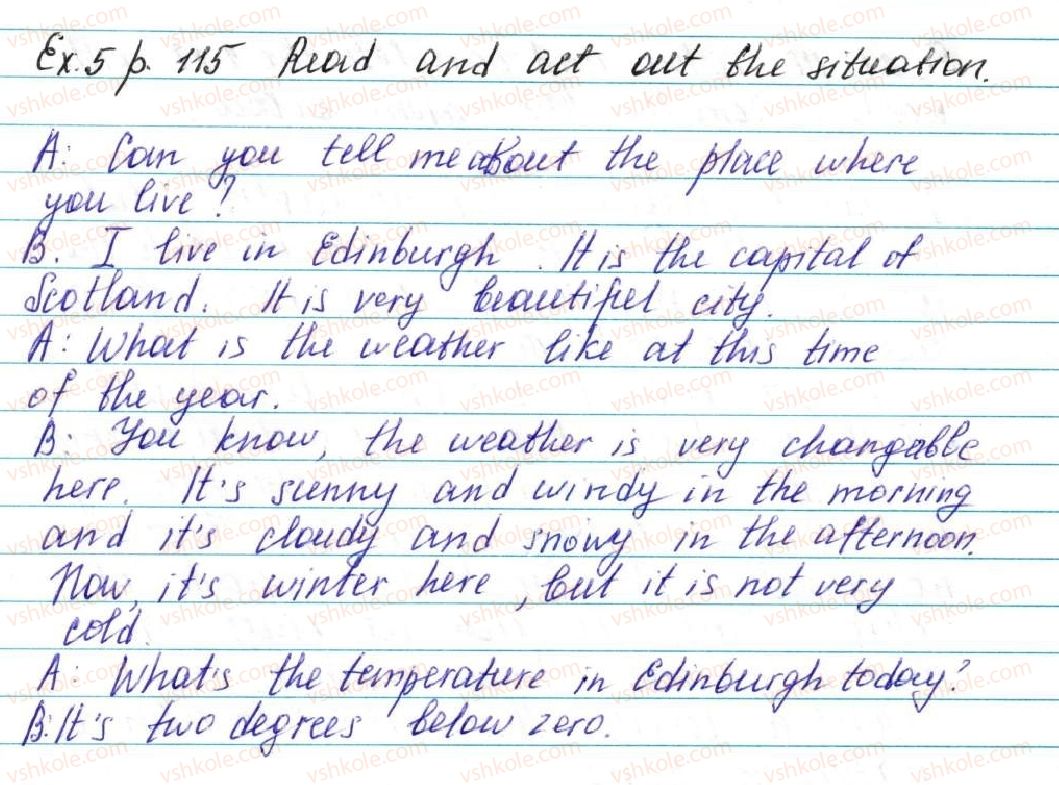 Ex.5 p. 115 Read and act out the situation.
A: Can you tell me about the place where
you live?
B. I live in Edinburgh. It is the capital of
Scotland. It is very beautiful city.
A: What is the weather like at this time
of the year.
B: You know, the weather is very changable
here. It's sunny and windy in the morning
and it's cloudy and snowy in the afternoon.
Now, it's winter here, but it is not very
cold.
A: What's the temperature in Edinburgh today?
B: It's two degrees below zero.